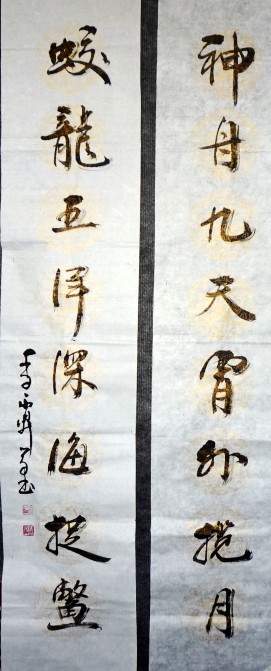 神舟九天霄外揽月
蛟龙五洋深海捉鳖